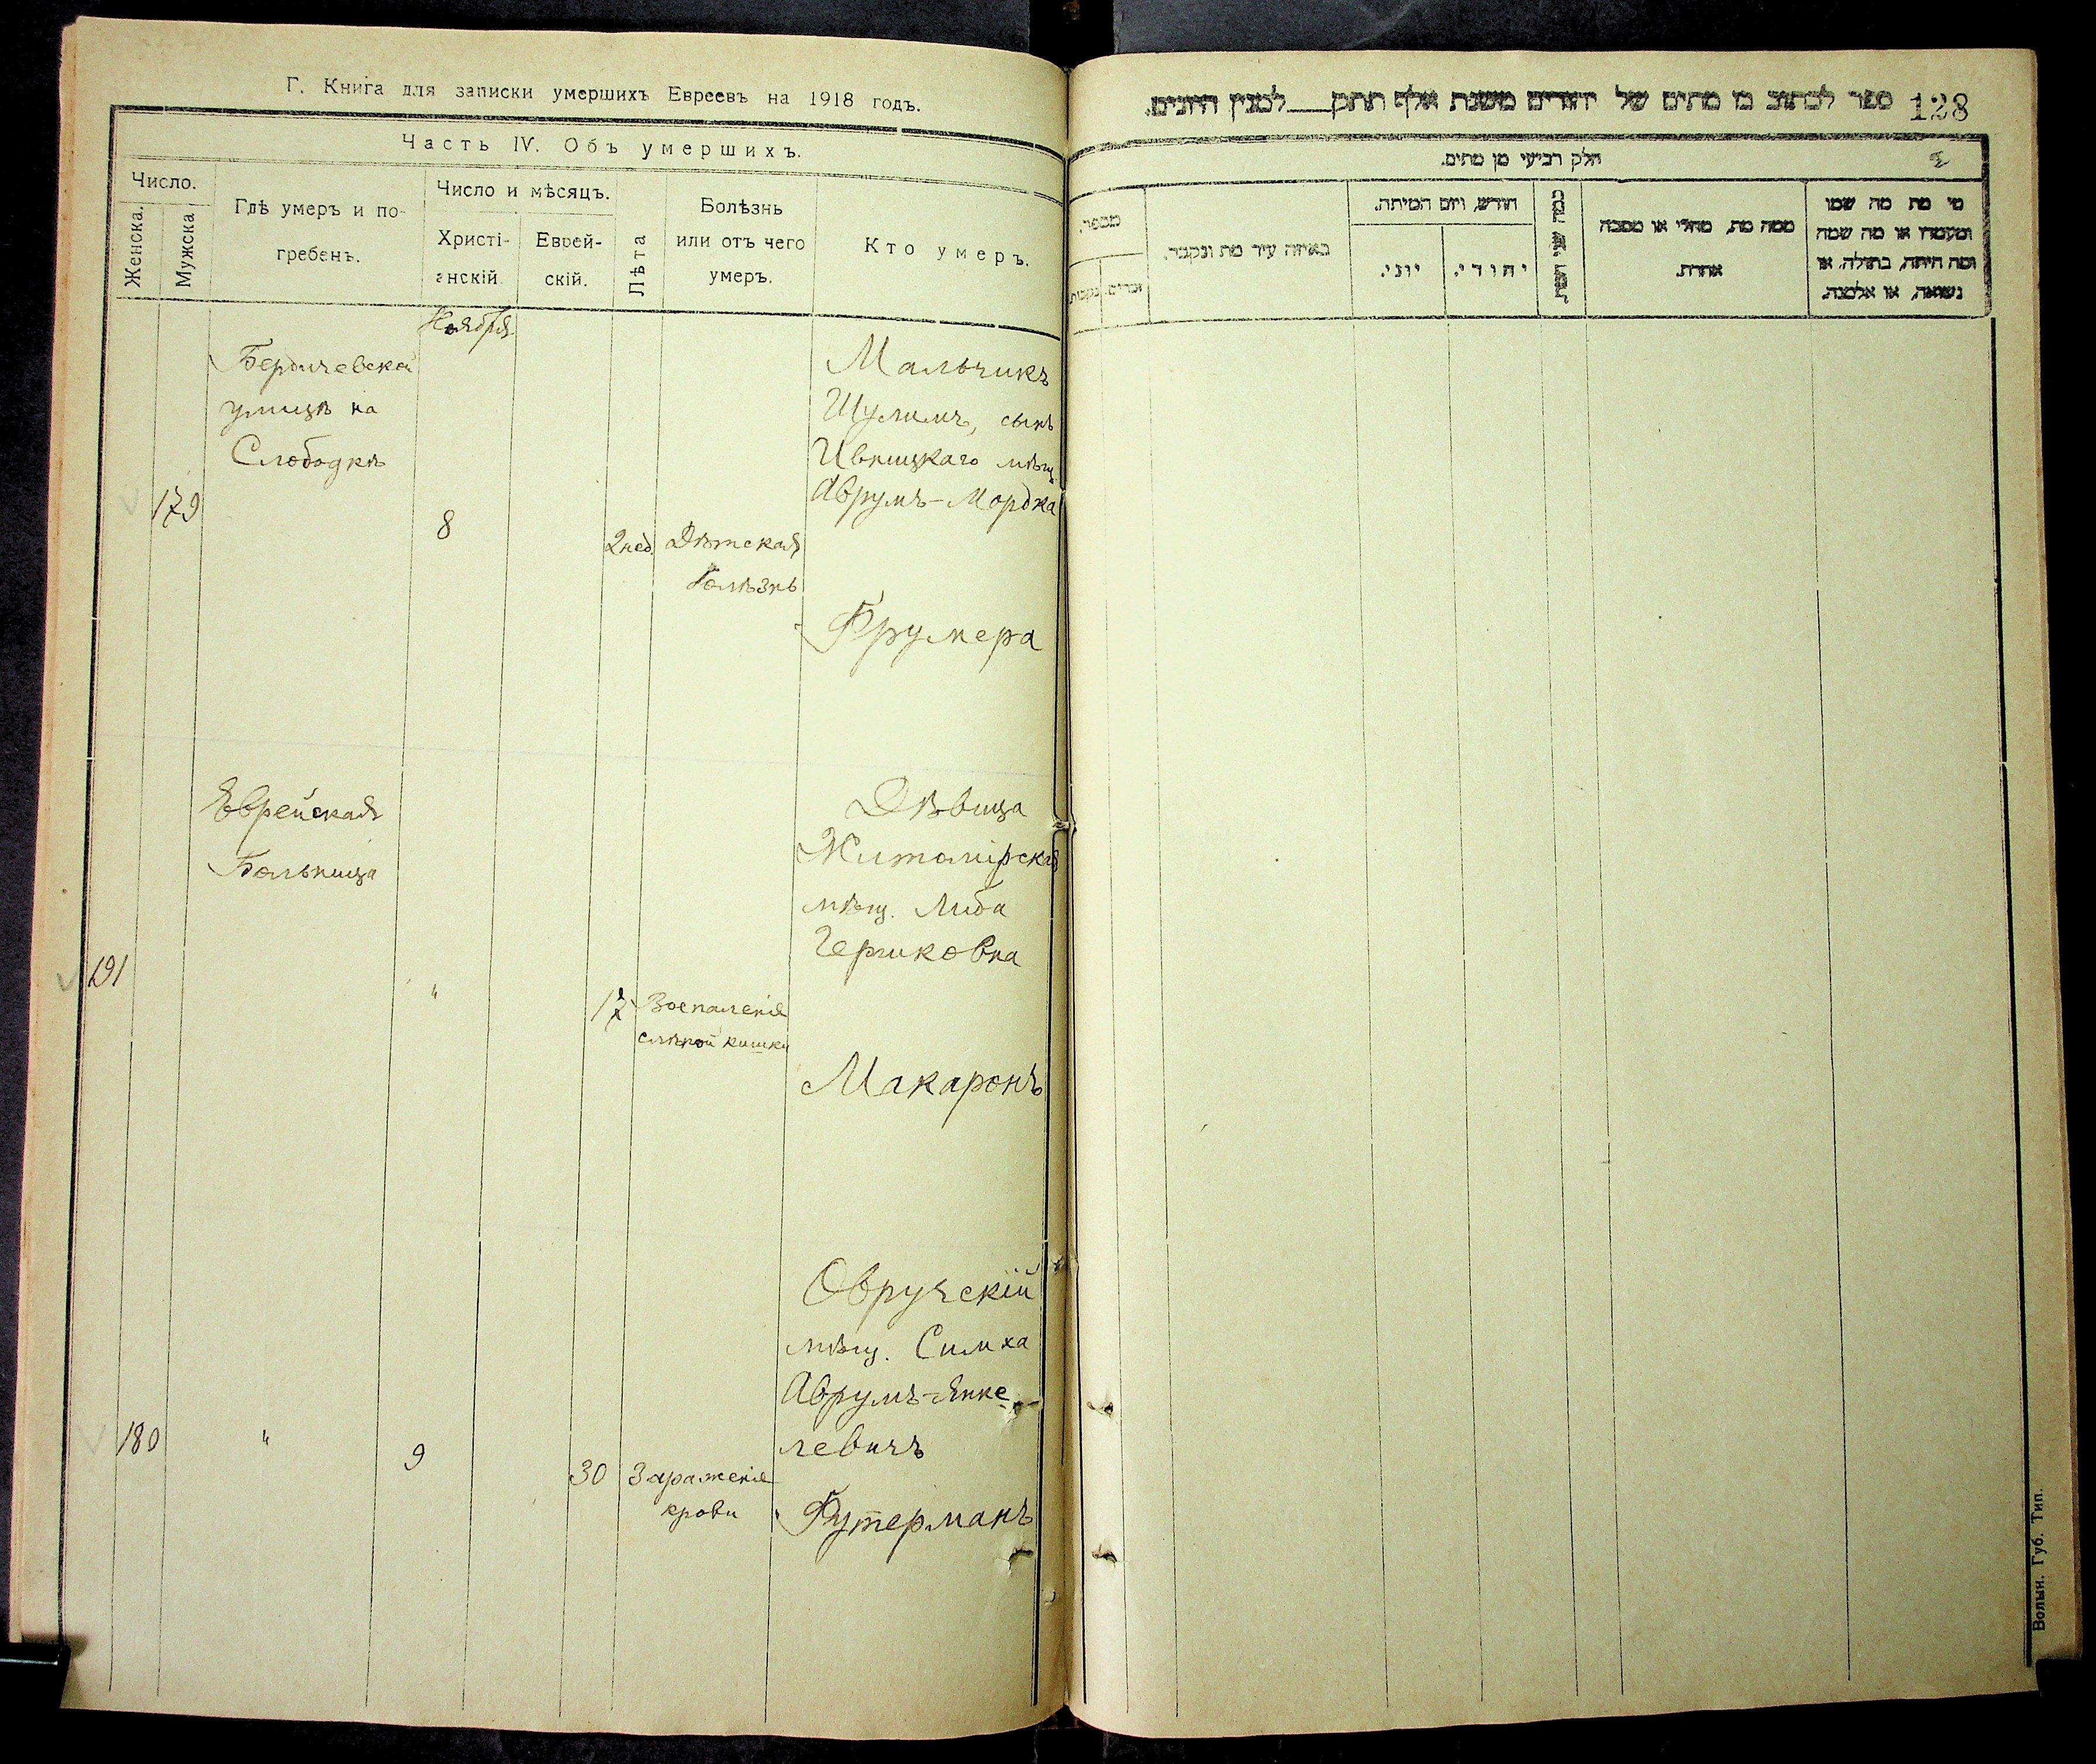 Г. Книга для записки умершихъ Евреевъ на 1918 годъ.
Часть IV. Объ умершихъ.
Число.
Женска.
Мужска
Гдѣ умеръ и по-
гребенъ.
Число и мѣсяцъ.
Христі-
анскій
Еврей-
скій.
Лѣта
Болѣзнь
или отъ чего
умеръ.
Кто умеръ.
Ноября
179
Бердичевской
улицѣ на
Слободкѣ
8
2 нед.
Дѣтская
болѣзнь
Мальчикъ
Шулимъ, сынъ
Ивницкаго мѣщ.
Аврумъ-Мордка
Фрумера
191
Еврейская
Больница
"
17
Воспаленіе
слѣпой кишки
Дѣвица
Житомірская
мѣщ. Либа
Гершковна
Макаронъ
180
"
9
30
Зараженіе
крови
Овручскій
мѣщ. Симха
Аврумъ-Янке
левичъ
Футерманъ
ספר לכתוב בו מתים של יהודים משנת אלף תתק___למנין היונים.
128
חלק רביעי מן מתים.
מי מת מה שמו
ומעמדו או מה שמה
ומה היתה, בתולה, או
נשואה, או אלמנה.
ממה מת, מחלי או מסבה
אחרת.
כמה שני המת
חודש, ויום המיתה.
יהודי.
יוני.
באיזה עיר מת ונקבר.
מספר.
זכרים.
נקבות
Волын. Губ. Тип.